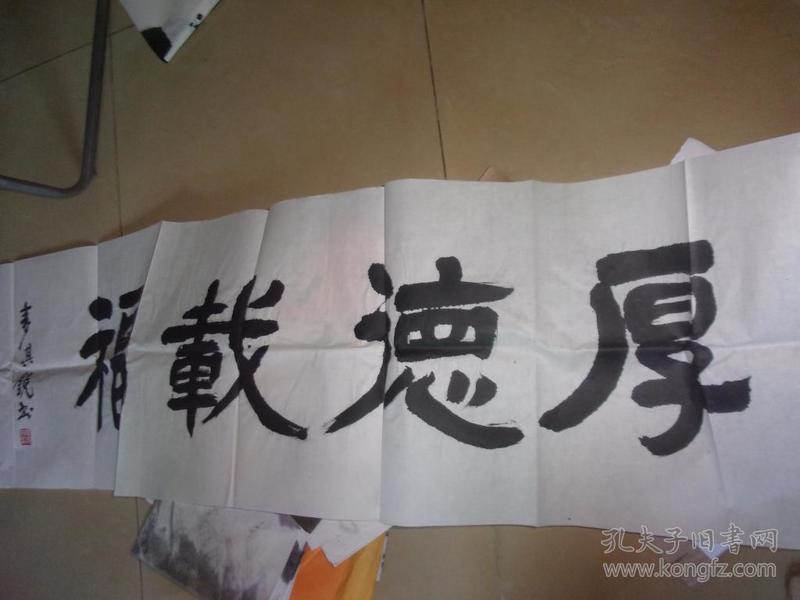 厚德載福
書
孔夫子旧书网
www.kongfz.com